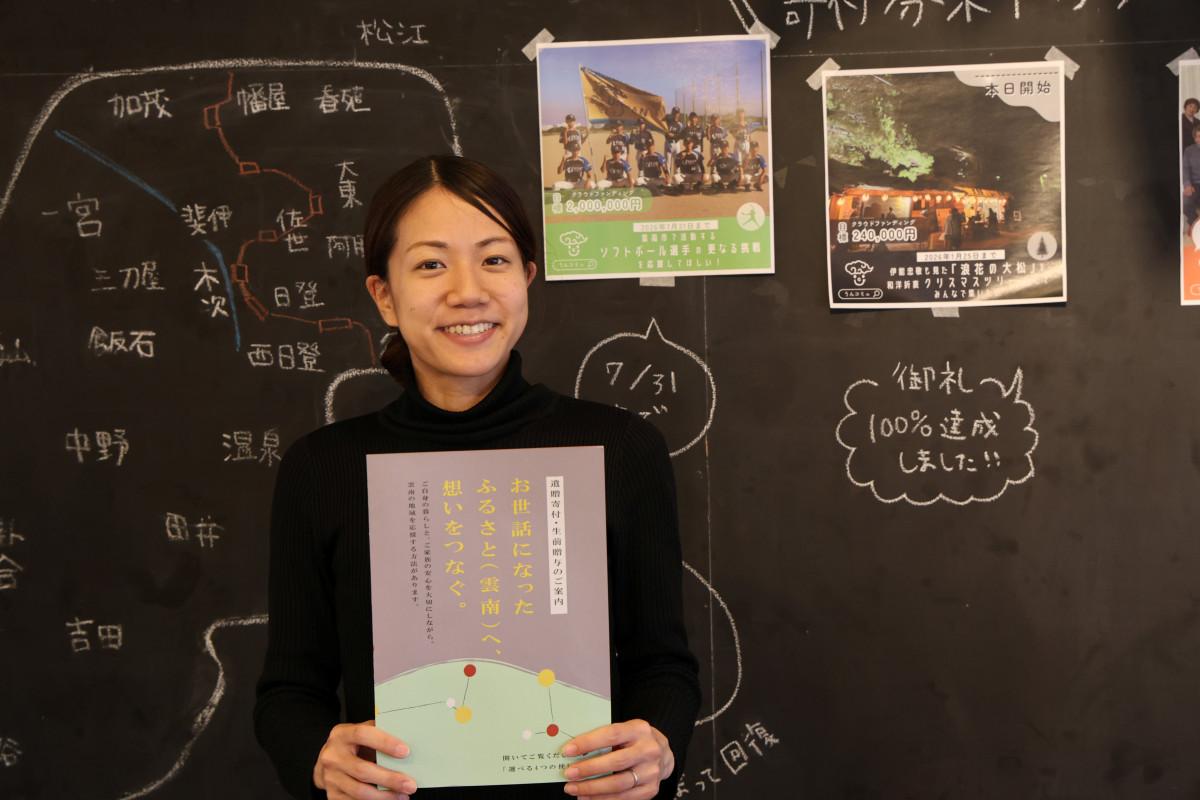 松江
加茂
幡屋
春殖
大東
一宮
斐伊
佐世
三刀屋
木次
日登
飯石
西日登
中野
温泉
田井
吉田
クラウドファンディング
目標 2,000,000円
2026年7月31日まで
雲南市で活動する
ソフトボール選手の更なる挑戦
を応援してほしい!
うんコミュ
本日開始
クラウドファンディング
目標 240,000円
2026年1月25日まで
伊能忠敬も見た「浪花の大松」
和洋折衷クリスマスツリー
みんなで
うんコミュ
7/31
御礼
100%達成
しました!!
遺贈寄付・生前贈与のご案内
お世話になった
ふるさと(雲南)へ、
想いをつなぐ。
ご自身の暮らしと、ご家族の安心を大切にしながら、
雲南の地域を応援する方法があります。
開いてご覧くだ
「選べる4つの使
って回復